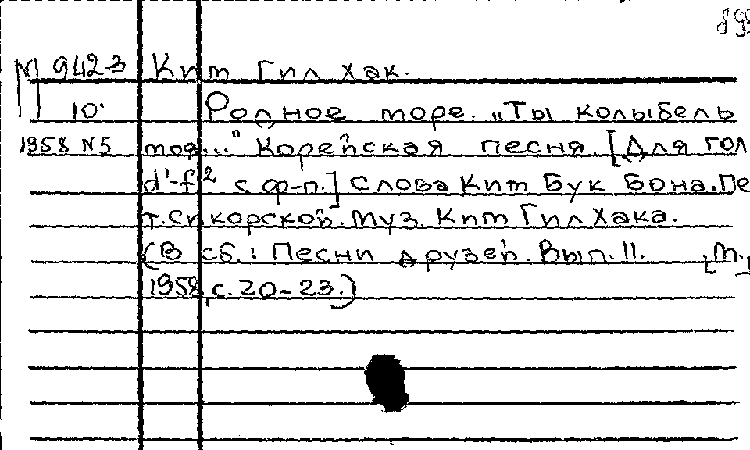 893
М 942-3 Ким Гил Хак.
10 Родное море. „Ты колыбель
1958 N5 моя..." Корейская песня. [Для гол
d'-f² с ф-п.] Слова Ким Бук Вона. Пе
Т. Сикорской. Муз. Ким Гил Хака.
(В сб.: Песни друзей. Вып. 11. [М.,
1958, с. 20-23.)